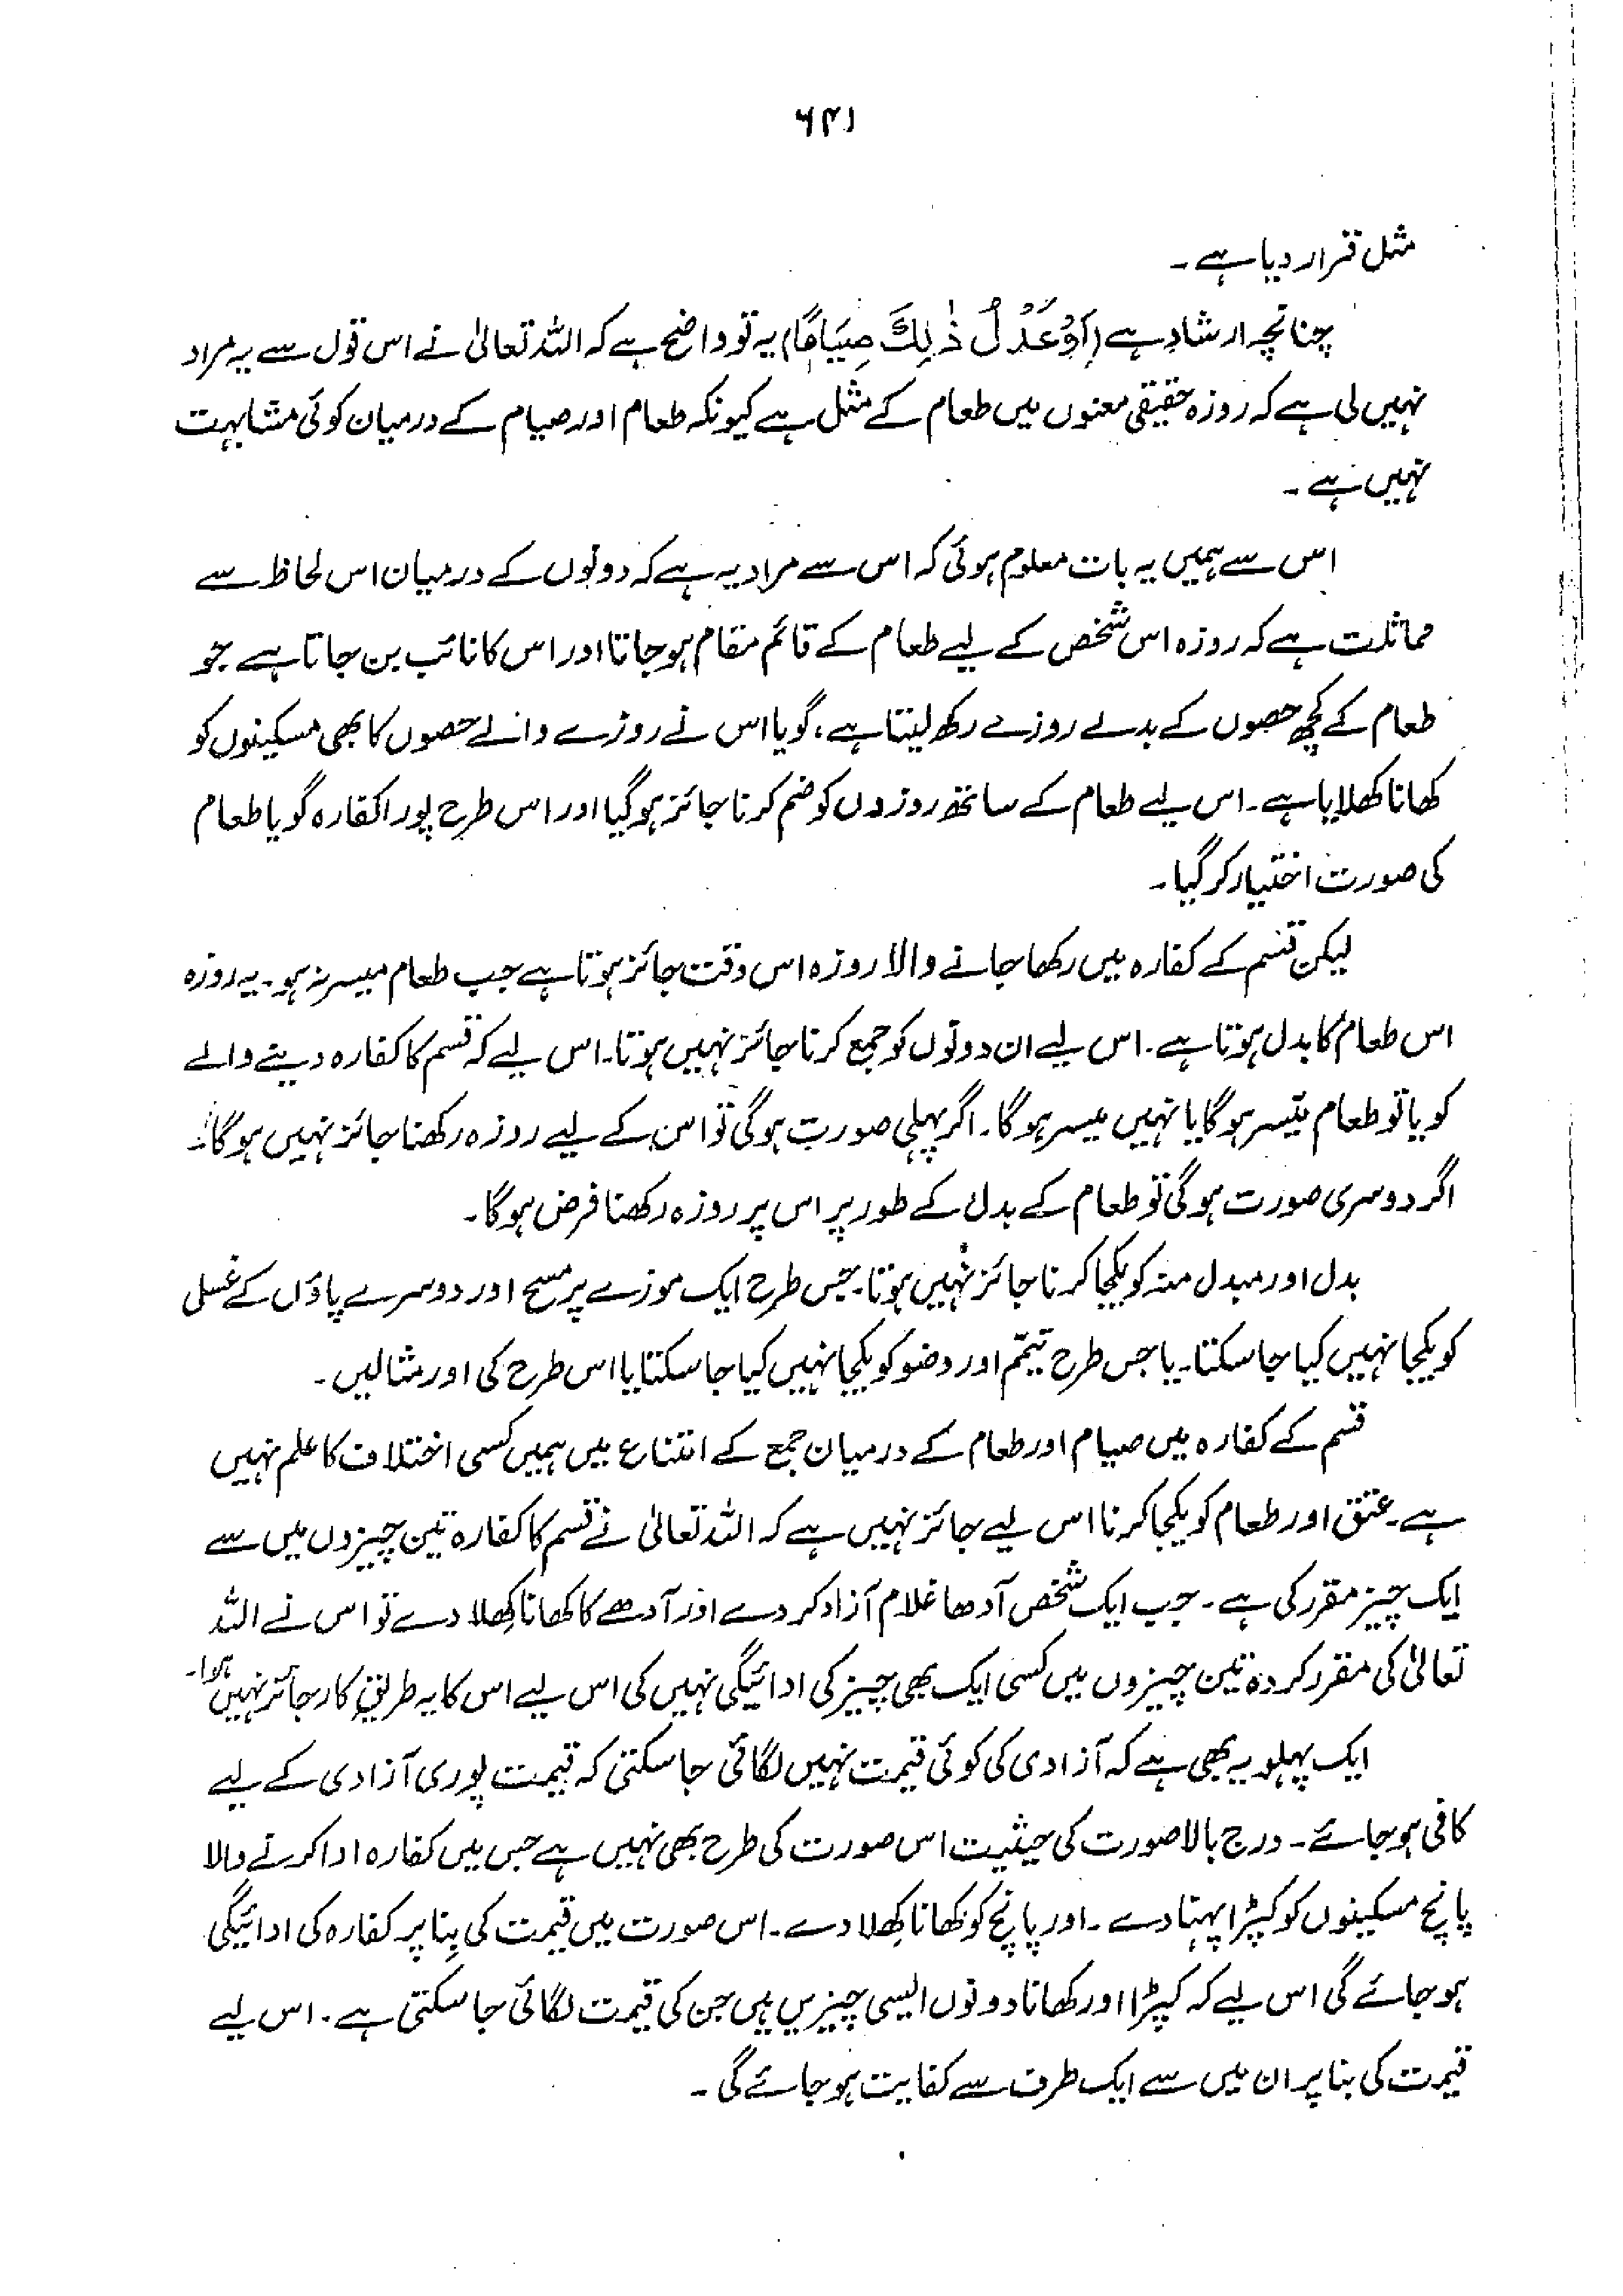 ۶۴۱
مثل قرار دیا ہے۔
چنانچہ ارشاد ہے (اَوْ عَدْلُ ذٰلِكَ صِيَامًا) یہ تو واضح ہے کہ اللہ تعالیٰ نے اس قول سے یہ مراد
نہیں لی ہے کہ روزہ حقیقی معنوں میں طعام کے مثل ہے کیونکہ طعام اور صیام کے درمیان کوئی مشابہت
نہیں ہے۔
اس سے ہمیں یہ بات معلوم ہوئی کہ اس سے مراد یہ ہے کہ دونوں کے درمیان اس لحاظ سے
مماثلت ہے کہ روزہ اس شخص کے لیے طعام کے قائم مقام ہو جاتا اور اس کا نائب بن جاتا ہے جو
طعام کے کچھ حصوں کے بدلے روزے رکھ لیتا ہے، گویا اس نے روزے والے حصوں کا بھی مسکینوں کو
کھانا کھلایا ہے۔ اس لیے طعام کے ساتھ روزوں کو ضم کرنا جائز ہو گیا اور اس طرح پورا کفارہ گویا طعام
کی صورت اختیار کر گیا۔
لیکن قسم کے کفارہ میں رکھا جانے والا روزہ اس وقت جائز ہوتا ہے جب طعام میسر نہ ہو۔ یہ روزہ
اس طعام کا بدل ہوتا ہے۔ اس لیے ان دونوں کو جمع کرنا جائز نہیں ہوتا۔ اس لیے کہ قسم کا کفارہ دینے والے
کو یا تو طعام میّسر ہو گا یا نہیں میسر ہو گا۔ اگر پہلی صورت ہو گی تو اس کے لیے روزہ رکھنا جائز نہیں ہو گا۔
اگر دوسری صورت ہو گی تو طعام کے بدل کے طور پر اس پر روزہ رکھنا فرض ہو گا۔
بدل اور مبدل منہ کو یکجا کرنا جائز نہیں ہوتا۔ جس طرح ایک موزے پر مسح اور دوسرے پاؤں کے غسل
کو یکجا نہیں کیا جا سکتا۔ یا جس طرح تیمّم اور وضو کو یکجا نہیں کیا جا سکتا یا اس طرح کی اور مثالیں۔
قسم کے کفارہ میں صیام اور طعام کے درمیان جمع کے امتناع میں ہمیں کسی اختلاف کا علم نہیں
ہے۔ عتق اور طعام کو یکجا کرنا اس لیے جائز نہیں ہے کہ اللہ تعالیٰ نے قسم کا کفارہ تین چیزوں میں سے
ایک چیز مقرر کی ہے۔ جب ایک شخص آدھا غلام آزاد کر دے اور آدھے کا کھانا کھِلا دے تو اس نے اللہ
تعالیٰ کی مقرر کردہ تین چیزوں میں کسی ایک بھی چیز کی ادائیگی نہیں کی اس لیے اس کا یہ طریقِ کار جائز نہیں ہوا۔
ایک پہلو یہ بھی ہے کہ آزادی کی کوئی قیمت نہیں لگائی جا سکتی کہ قیمت پوری آزادی کے لیے
کافی ہو جائے۔ درج بالا صورت کی حیثیت اس صورت کی طرح بھی نہیں ہے جس میں کفارہ ادا کرنے والا
پانچ مسکینوں کو کپڑا پہنا دے۔ اور پانچ کو کھانا کھِلا دے۔ اس صورت میں قیمت کی بِنا پر کفارہ کی ادائیگی
ہو جائے گی اس لیے کہ کپڑا اور کھانا دونوں ایسی چیزیں ہیں جن کی قیمت لگائی جا سکتی ہے۔ اس لیے
قیمت کی بنا پر ان میں سے ایک طرف سے کفایت ہو جائے گی۔